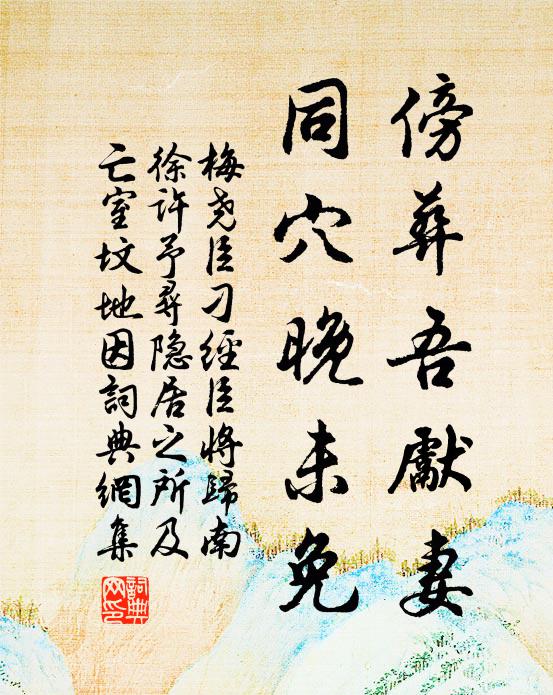 傍葬吾獻妻
同穴晚未免
梅堯臣刁經臣將歸南
徐許予尋隐居之所及
亡室坟地因詞典網集
詞典网印